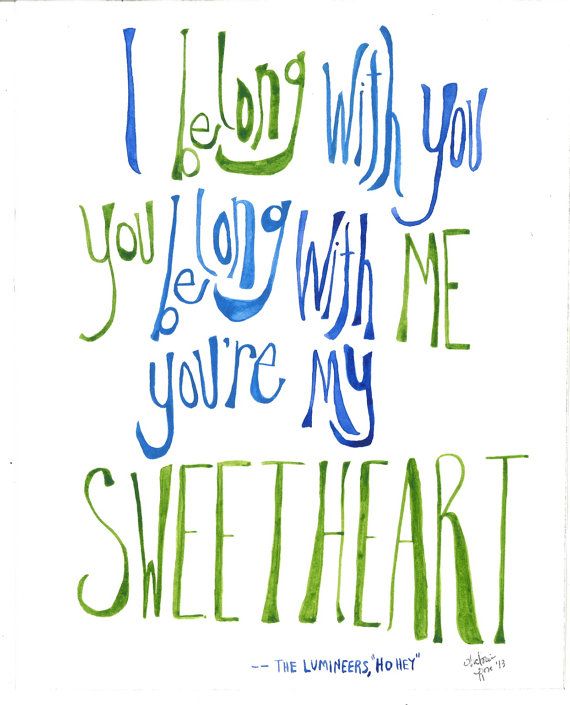 I belong with you
you belong with ME
you're My
SWEETHEART
-- THE LUMINEERS, "HO HEY"
'13